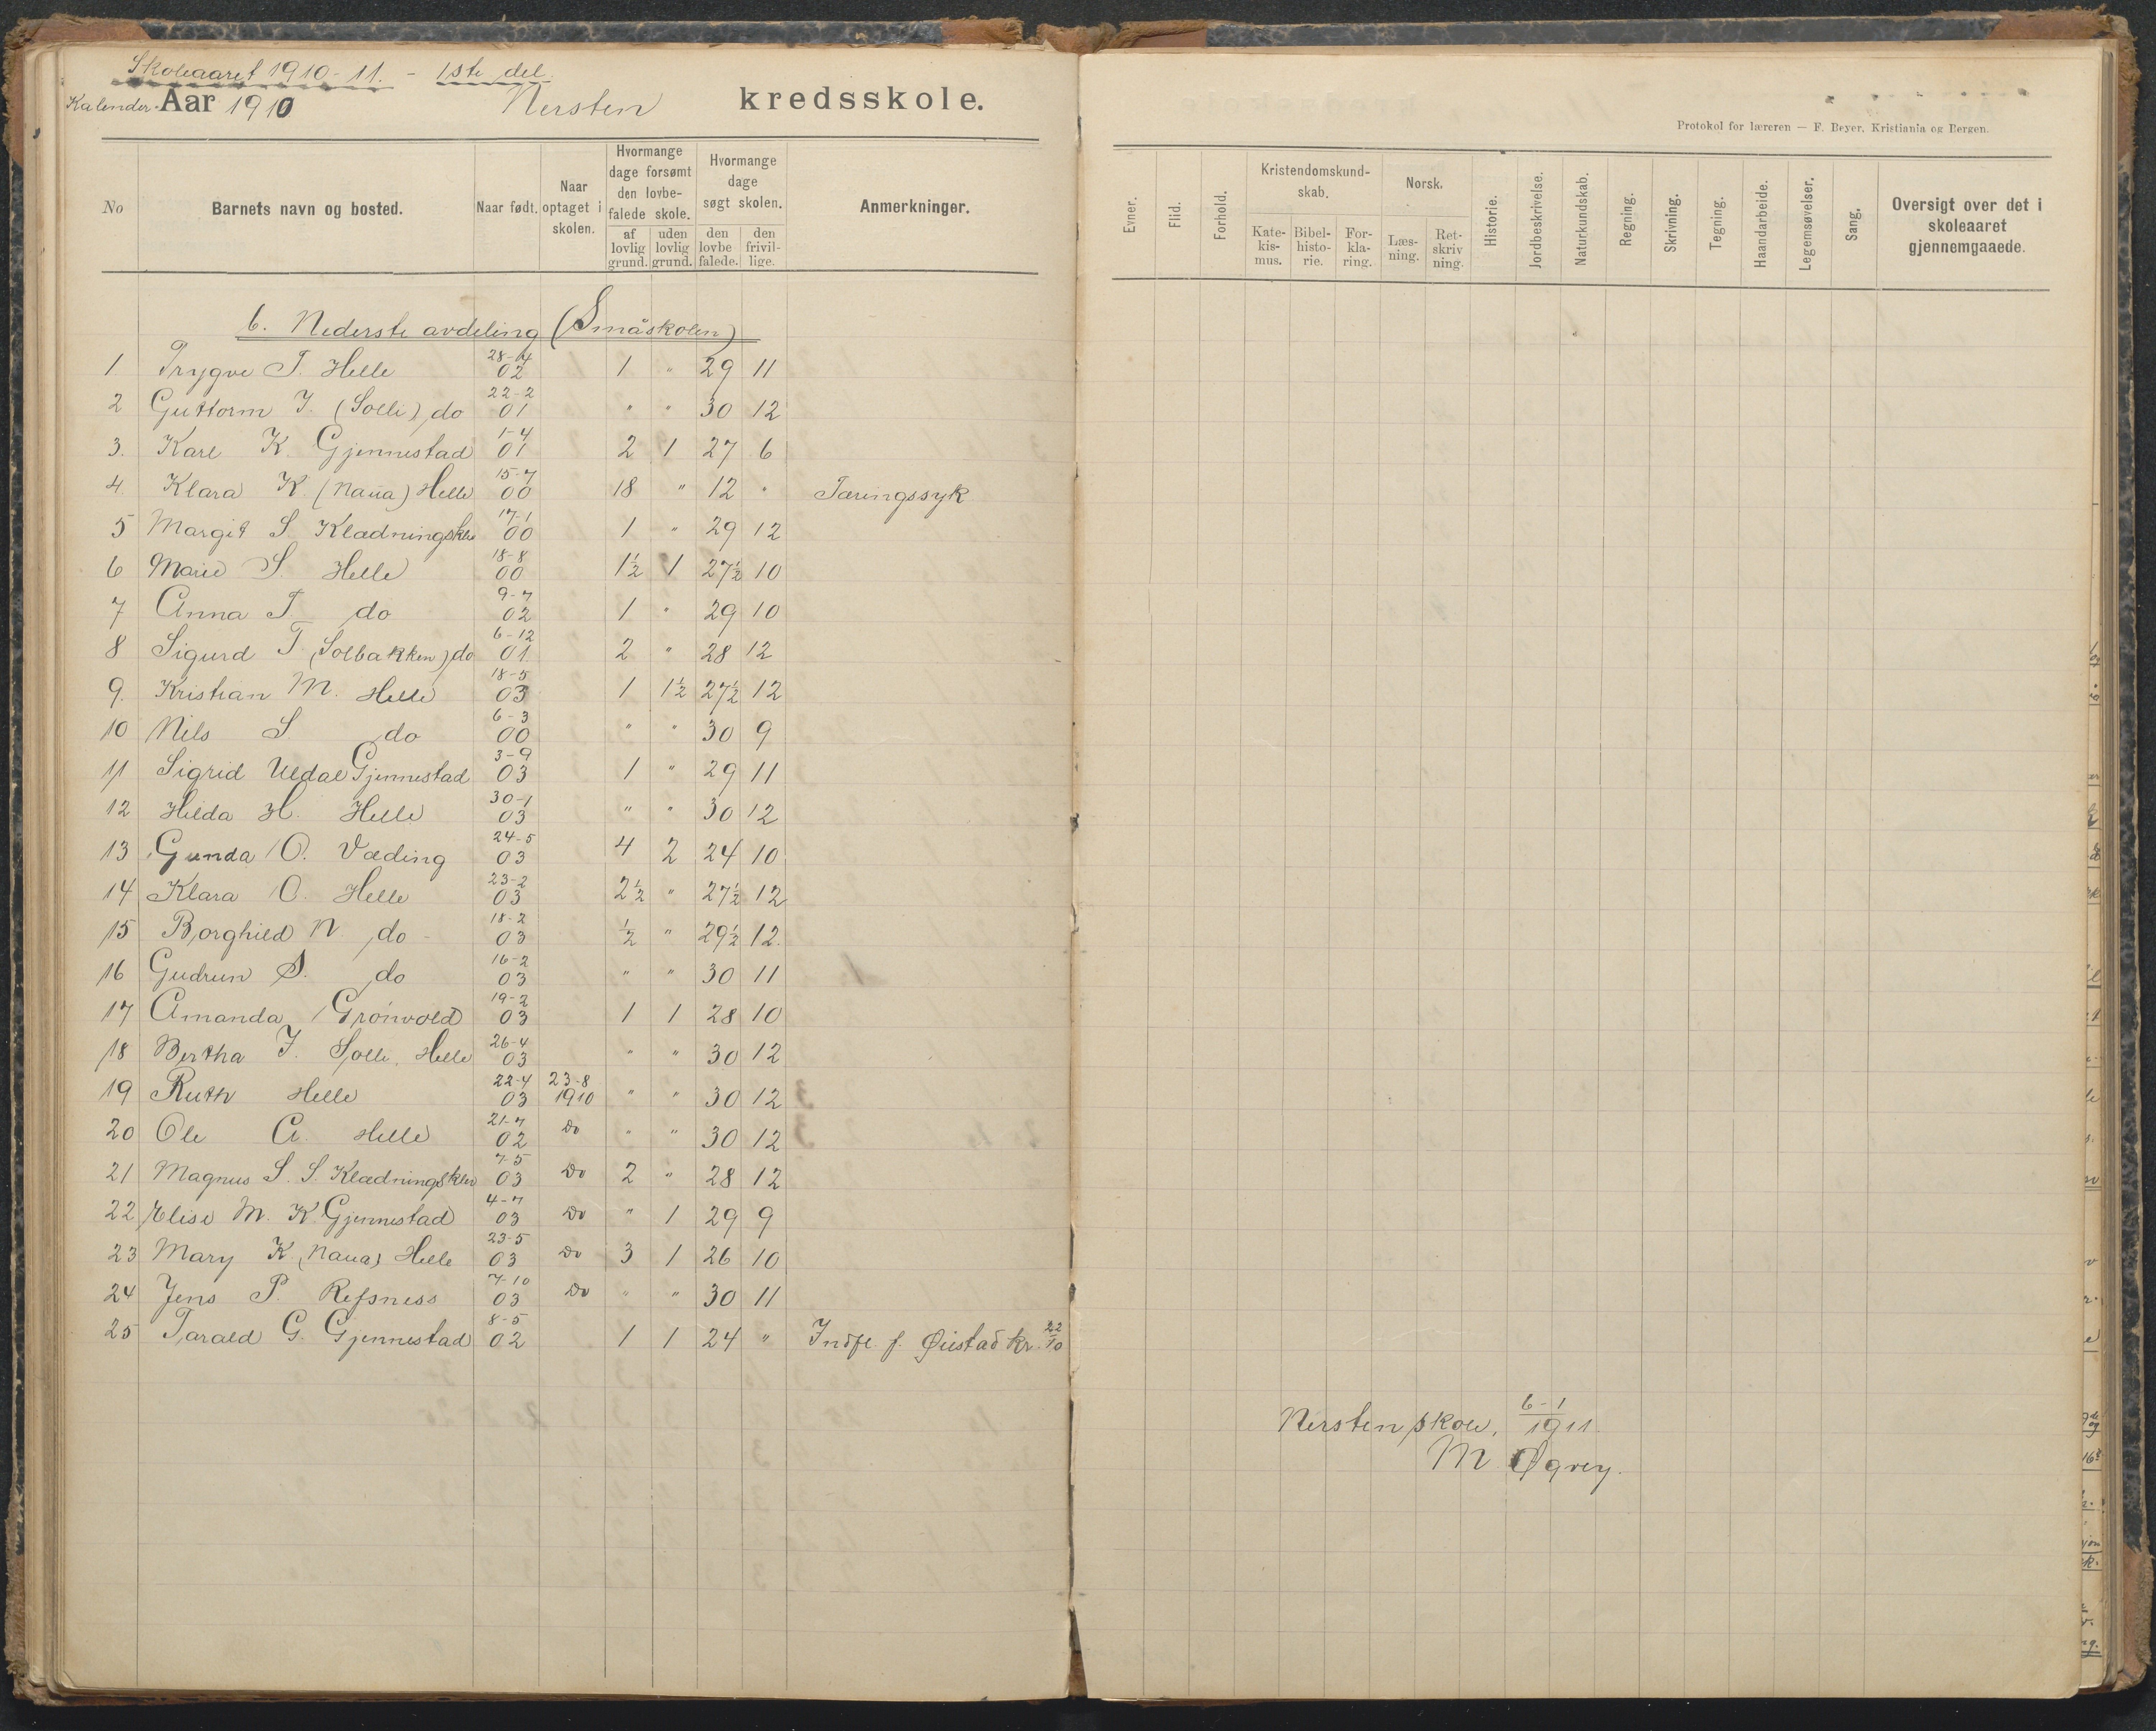 Skoleaaret 1910-11. - 1ste del.
Kalender-Aar 1910 Nersten kredsskole.
Protokol for læreren — F. Beyer. Kristiania og Bergen.
No
Barnets navn og bosted.
Naar født.
Naar optaget i skolen.
Hvormange dage forsømt den lovbefalede skole.
af lovlig grund.
uden lovlig grund.
Hvormange dage søgt skolen.
den lovbe falede.
den frivil- lige.
Anmerkninger.
Evner.
Flid.
Forhold.
Kristendomskund- skab.
Kate- kis- mus.
Bibel- histo- rie.
For- kla- ring.
Norsk.
Læs- ning.
Ret- skriv ning.
Historie.
Jordbeskrivelse.
Naturkundskab.
Regning.
Skrivning.
Tegning.
Haandarbeide.
Legemsøvelser.
Sang.
Oversigt over det i skoleaaret gjennemgaaede.
6. Nederste avdeling (Småskolen)
1 Trygve T. Helle 28-4 02 1 " 29 11
2 Guttorm J. (Solli) do 22-2 01 " " 30 12
3. Karl K. Gjennestad 1-4 01 2 1 27 6
4. Klara K. (Naua) Helle 15-7 00 18 " 12 " Tæringssyk
5 Margit S. Klædningsklev 17-1 00 1 " 29 12
6 Marie S. Helle 18-8 00 1½ 1 27½ 10
7 Anna T. do 9-7 02 1 " 29 10
8 Sigurd T. (Solbakken) do 6-12 01 2 " 28 12
9. Kristian M. Helle 18-5 03 1 1½ 27½ 12
10 Nils S. do 6-3 00 " " 30 9
11 Sigrid Uldal Gjennestad 3-9 03 1 " 29 11
12 Helda H. Helle 30-1 03 " " 30 12
13 Gunda O. Væding 24-5 03 4 2 24 10
14 Klara O. Helle 23-2 03 2½ " 27½ 12
15 Borghild N. do 18-2 03 ½ " 29½ 12.
16 Gudrun S. do 16-2 03 " " 30 11
17 Amanda Grönvold 19-2 03 1 1 28 10
18 Bertha J. Solli, Helle 26-4 03 " " 30 12
19 Ruth Helle 22-4 03 23-8 1910 " " 30 12
20 Ole A. Helle 21-7 02 Do " " 30 12
21 Magnus S. S. Klædningsklev 7-5 03 Do 2 " 28 12
22 Elise M. K. Gjennestad 4-7 03 Do " 1 29 9
23 Mary K. (Naua) Helle 23-5 03 Do 3 1 26 10
24 Jens P. Refsness 7-10 03 Do " " 30 11
25 Tarald G. Gjennestad 8-5 02 1 1 24 " Indfl. f. Øiestad kr. 22/10
Nersten skole, 6-1 1911.
M. Øgrey.